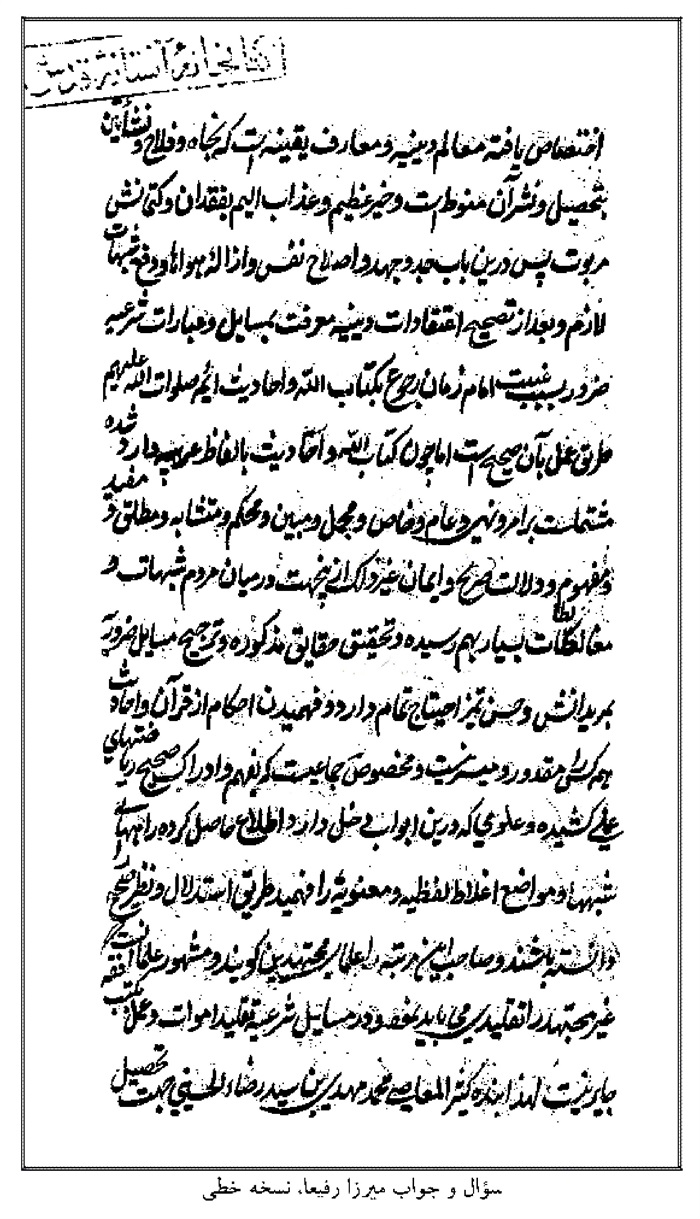 کتابخانهٔ آستانهٔ قدس
اختصاص یافته معالم دینیه و معارف یقینیه است که نجاه و فلاح نشأتین
بتحصیل و نشر آن منوط است و خبر عظیم و عذاب الیم بفقدان و
مربوت پس درین باب جد و جهد و اصلاح نفس و ازالهٔ هواها و دفع شبهات
لازم و بعد از تصحیح اعتقادات دینیه معرفت بمسایل و عبارات شرعیه
ضرور بسبب غیبت امام زمان رجوع بکتاب الله و احادیث ائمه صلوات الله علیهم
طریق عمل بآن صحیح است اما چون کتاب الله و احادیث بالفاظ عربیه وارد شده
مشتملست بر امر و نهی و عام و خاص و مجمل و مبین و محکم و متشابه و مطلق و مقید
و مفهوم و دلالت صریح و ایمان غیر ذلک ازینجهت در میان مردم شبهات و
مغالطات بسیار بهم رسیده و تحقیق حقایق مذکوره و ترجیح مسایل ضروریه
بمرید دانش و حسن تمیز احتیاج تمام دارد و فهمیدن احکام از قرآن و احادیث
هم کسی را مقدور و میسر نیست و مخصوص جماعیست که بفهم و ادراک صحیح ریاضتهای
علمی کشیده و علومی که درین ابواب دخل دارد اطلاع حاصل کرده راههای
شبهها و مواضع اغلاط لفظیه و معنویه را فهمید طریق استدلال و نظر صحیح را
دانسته باشند و صاحب این مرتبه را علمای مجتهدین گویند و مشهور علما آنست که
غیر مجتهد را تقلید می باید نمود و در مسایل شرعیه تقلید اموات و عمل بکتب فقه
جایز نیست لهذا بنده کثیر المعاصی محمد مهدی بن سید رضاء الحسینی جهت تحصیل
سؤال و جواب میرزا رفیعا، نسخه خطی